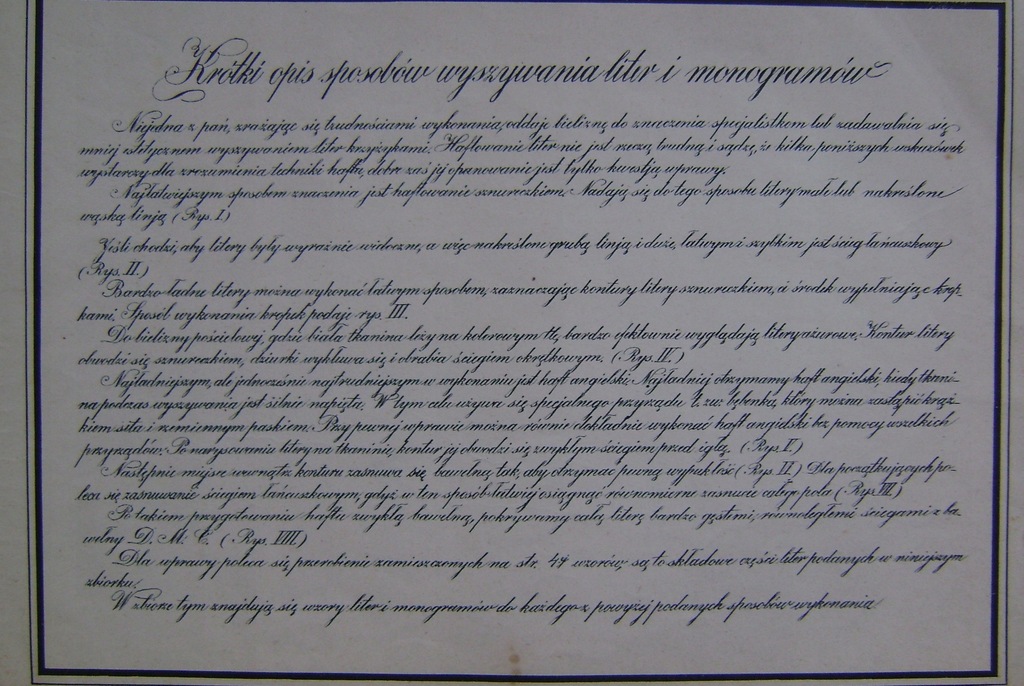 Krótki opis sposobów wyszywania liter i monogramów
Niejedna z pań, zrażając się trudnościami wykonania, oddaje bieliznę do znaczenia specjalistkom lub zadawalnia się
mniej estetycznem wyszywaniem liter krzyżykami. Haftowanie liter nie jest rzeczą trudną i sądzę, że kilka poniższych wskazówek
wystarczy dla zrozumienia techniki haftu, dobre zaś jej opanowanie jest tylko kwestją wprawy.
Najłatwiejszym sposobem znaczenia jest haftowanie sznureczkiem. Nadają się do tego sposobu litery małe lub nakreślone
wąską linją (Rys. I.)
Jeśli chodzi, aby litery były wyraźnie widoczne, a więc nakreślone grubą linją i duże, łatwym i szybkim jest ścieg łańcuszkowy
(Rys. II.)
Bardzo ładne litery można wykonać łatwym sposobem, zaznaczając kontury litery sznureczkiem, a środek wypełniając krop-
kami. Sposób wykonania kropek podaje rys. III.
Do bielizny pościelowej, gdzie biała tkanina leży na kolorowym tle, bardzo efektownie wyglądają litery ażurowe. Kontur litery
obwodzi się sznureczkiem, dziurki wykłuwa się i obrabia ściegiem okrętkowym. (Rys. IV.)
Najładniejszym, ale jednocześnie najtrudniejszym w wykonaniu jest haft angielski. Najładniej otrzymamy haft angielski, kiedy tkani-
na podczas wyszywania jest silnie napięta. W tym celu używa się specjalnego przyrządu t. zw. bębenka, który można zastąpić krąż-
kiem sita i rzemiennym paskiem. Przy pewnej wprawie można równie dokładnie wykonać haft angielski bez pomocy wszelkich
przyrządów. Po narysowaniu litery na tkaninie, kontur jej obwodzi się zwykłym ściegiem przed igłę. (Rys. V.)
Następnie miejsce wewnątrz konturu zasnuwa się bawełną tak, aby otrzymać pewną wypukłość (Rys. VI.) Dla początkujących po-
leca się zasnuwanie ściegiem łańcuszkowym, gdyż w ten sposób łatwiej osiągnąć równomierne zasnucie całego pola (Rys. VII.)
Po takiem przygotowaniu haftu zwykłą bawełną, pokrywamy całą literę bardzo gęstemi, równoległemi ściegami z ba-
wełny D. M. C. (Rys. VIII.)
Dla wprawy poleca się przerobienie zamieszczonych na str. 44 wzorów, są to składowe części liter podanych w niniejszym
zbiorku.
W zbiorze tym znajdują się wzory liter i monogramów do każdego z powyżej podanych sposobów wykonania